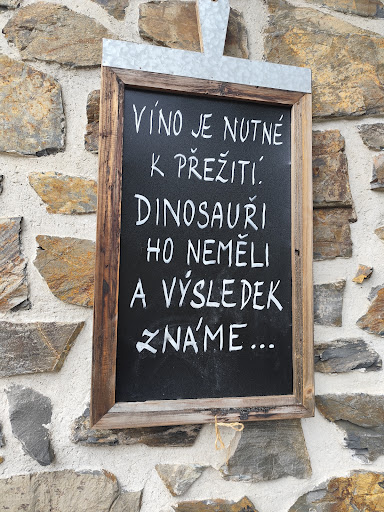 VÍNO JE NUTNÉ
K PŘEŽITÍ.
DINOSAUŘI
HO NEMĚLI
A VÝSLEDEK
ZNÁME...